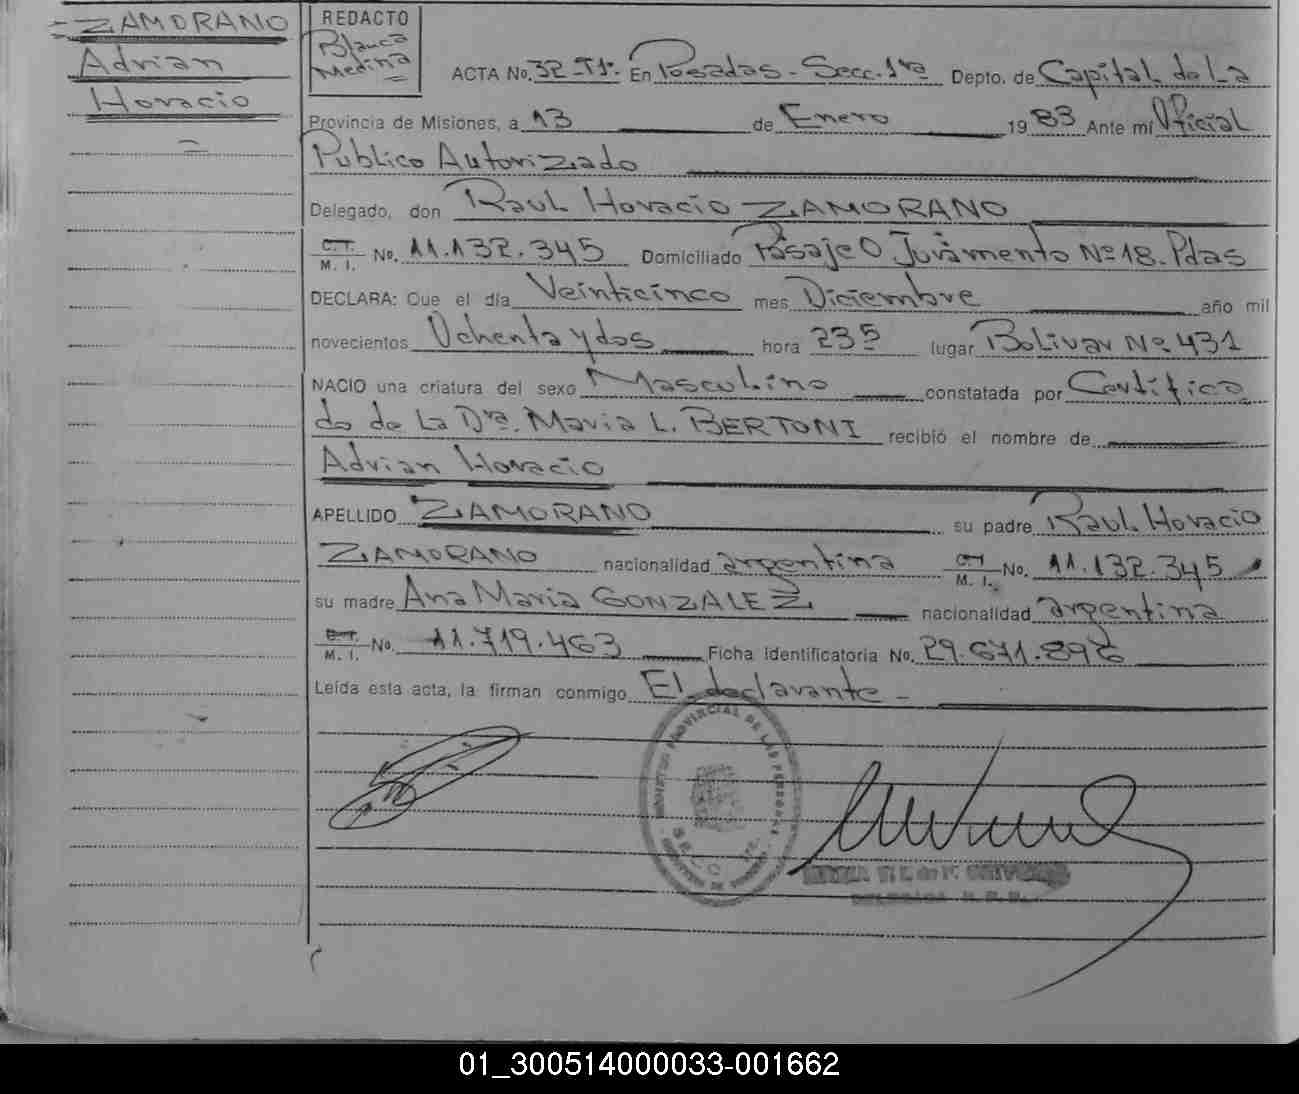 ZAMORANO
Adrian
Horacio
REDACTO
Blanca
Medina
ACTA No. 32-T1º En Posadas - Secc. 1ra Depto. de Capital de La
Provincia de Misiones, a 13 de Enero 1983 Ante mi Oficial
Publico Autorizado
Delegado, don Raul Horacio ZAMORANO
C.I.
M. I. No. 11.132.345 Domiciliado Pasaje O Juramento Nº 18. Pdas
DECLARA: Que el día Veinticinco mes Diciembre año mil
novecientos Ochenta y dos hora 23 5 lugar Bolivar Nº 431
NACIO una criatura del sexo Masculino constatada por Certifica
do de La Dra. Maria L. BERTONI recibió el nombre de
Adrian Horacio
APELLIDO ZAMORANO su padre Raul Horacio
ZAMORANO nacionalidad argentina C.I.
M. I. No. 11.132.345
su madre Ana Maria GONZALEZ nacionalidad argentina
M. I. No. 11.719.463 Ficha Identificatoria No. 29.671.896
Leída esta acta, la firman conmigo El declarante -
PROVINCIAL DE LAS PERSONAS
01_300514000033-001662